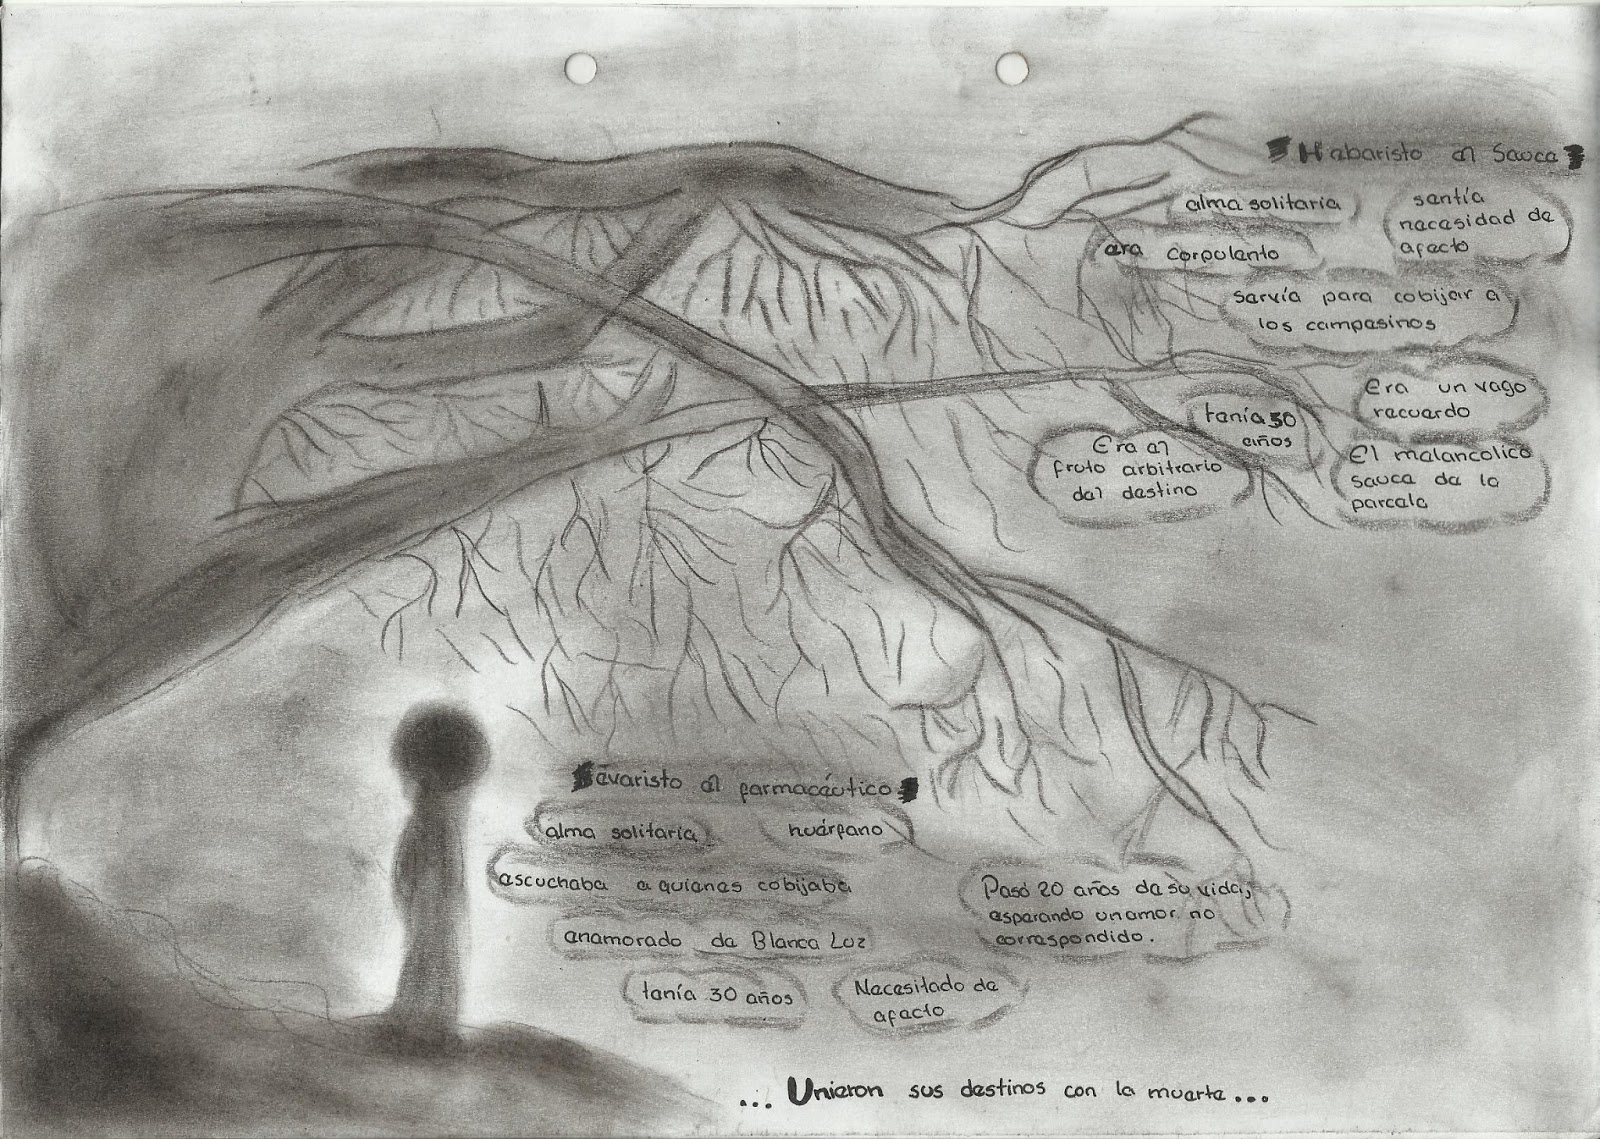 Hebaristo el Sauce
alma solitaria
sentía
necesidad de
afecto
era corpulento
servía para cobijar a
los campesinos
Era un vago
recuerdo
tenía 30
años
Era el
fruto arbitrario
del destino
El melancolico
sauce de la
parcela
evaristo el farmacéutico
alma solitaria
huérfano
escuchaba a quienes cobijaba
Pasó 20 años de su vida,
esperando un amor no
correspondido.
enamorado de Blanca Luz
tenía 30 años
Necesitado de
afecto
... Unieron sus destinos con la muerte...